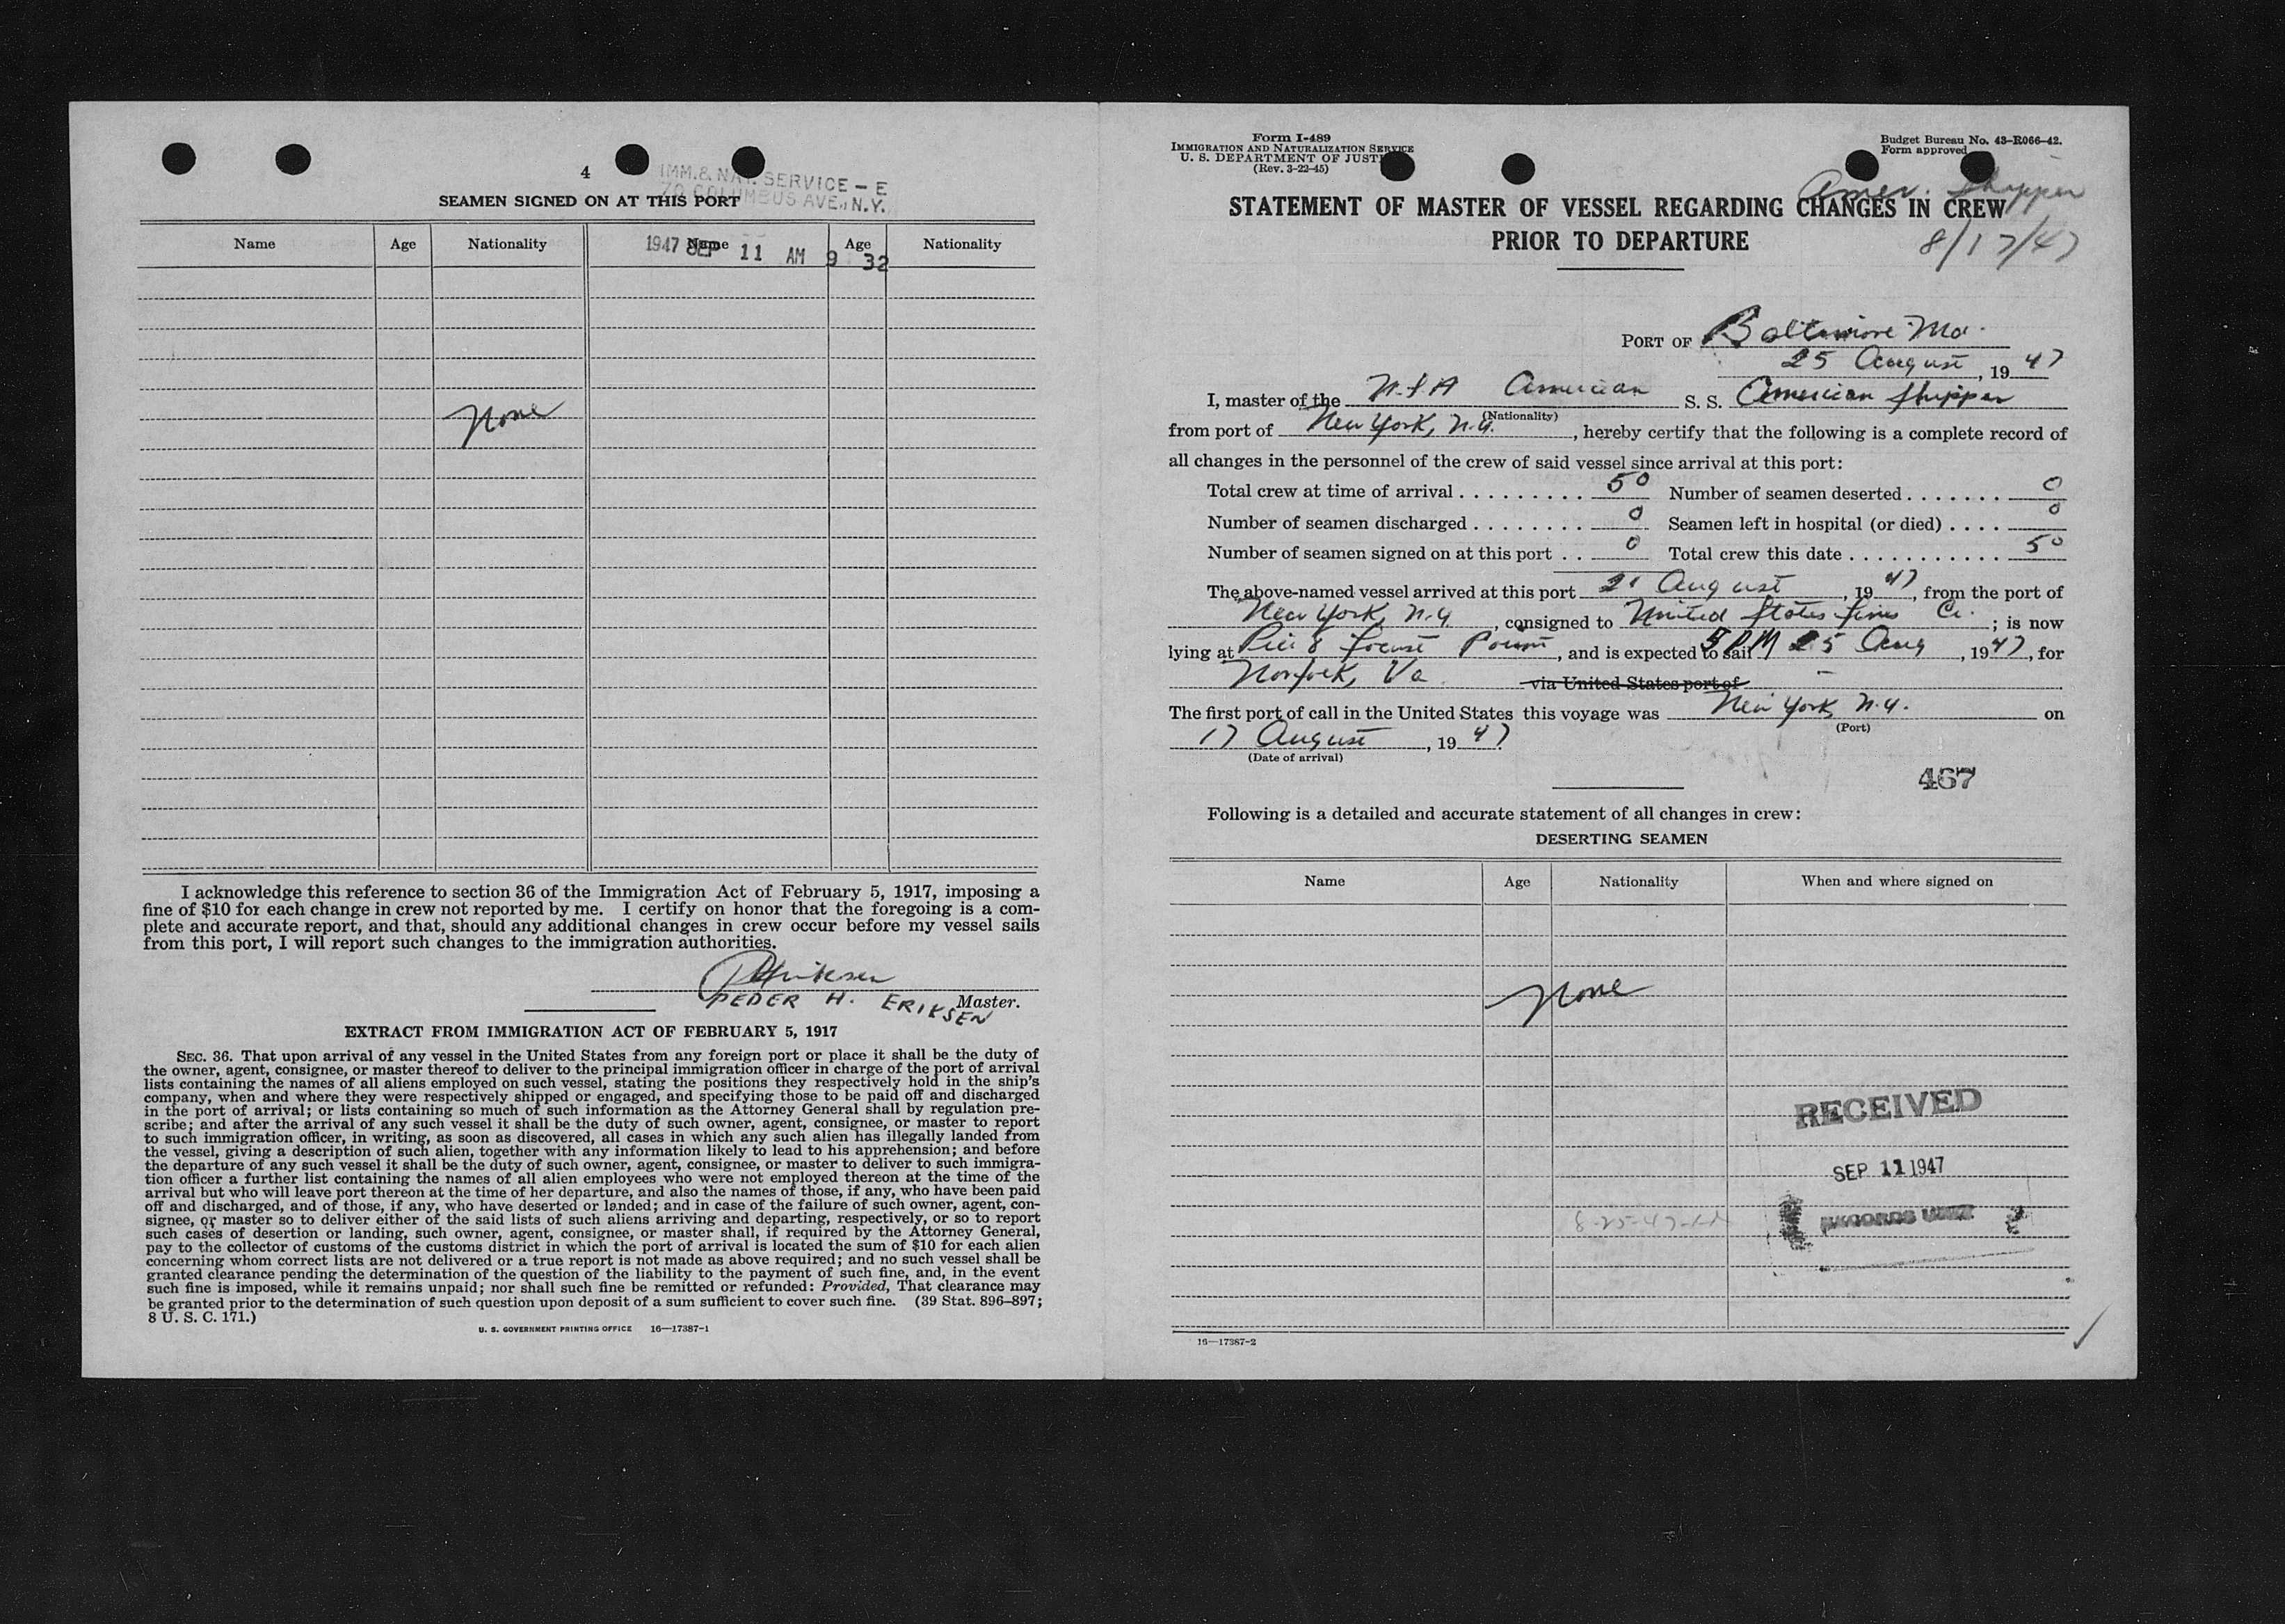 4
IMM. & NAT. SERVICE — E
70 COLUMBUS AVE., N.Y.
SEAMEN SIGNED ON AT THIS PORT
Name Age Nationality Name Age Nationality
1947 SEP 11 AM 9 32
None
I acknowledge this reference to section 36 of the Immigration Act of February 5, 1917, imposing a
fine of $10 for each change in crew not reported by me. I certify on honor that the foregoing is a com-
plete and accurate report, and that, should any additional changes in crew occur before my vessel sails
from this port, I will report such changes to the immigration authorities.
PHEriksen
PEDER H. ERIKSEN Master.
EXTRACT FROM IMMIGRATION ACT OF FEBRUARY 5, 1917
SEC. 36. That upon arrival of any vessel in the United States from any foreign port or place it shall be the duty of
the owner, agent, consignee, or master thereof to deliver to the principal immigration officer in charge of the port of arrival
lists containing the names of all aliens employed on such vessel, stating the positions they respectively hold in the ship's
company, when and where they were respectively shipped or engaged, and specifying those to be paid off and discharged
in the port of arrival; or lists containing so much of such information as the Attorney General shall by regulation pre-
scribe; and after the arrival of any such vessel it shall be the duty of such owner, agent, consignee, or master to report
to such immigration officer, in writing, as soon as discovered, all cases in which any such alien has illegally landed from
the vessel, giving a description of such alien, together with any information likely to lead to his apprehension; and before
the departure of any such vessel it shall be the duty of such owner, agent, consignee, or master to deliver to such immigra-
tion officer a further list containing the names of all alien employees who were not employed thereon at the time of the
arrival but who will leave port thereon at the time of her departure, and also the names of those, if any, who have been paid
off and discharged, and of those, if any, who have deserted or landed; and in case of the failure of such owner, agent, con-
signee, or master so to deliver either of the said lists of such aliens arriving and departing, respectively, or so to report
such cases of desertion or landing, such owner, agent, consignee, or master shall, if required by the Attorney General,
pay to the collector of customs of the customs district in which the port of arrival is located the sum of $10 for each alien
concerning whom correct lists are not delivered or a true report is not made as above required; and no such vessel shall be
granted clearance pending the determination of the question of the liability to the payment of such fine, and, in the event
such fine is imposed, while it remains unpaid; nor shall such fine be remitted or refunded: Provided, That clearance may
be granted prior to the determination of such question upon deposit of a sum sufficient to cover such fine. (39 Stat. 896–897;
8 U. S. C. 171.)
U. S. GOVERNMENT PRINTING OFFICE 16—17387-1
Form I-489
IMMIGRATION AND NATURALIZATION SERVICE
U. S. DEPARTMENT OF JUSTI
(Rev. 3-22-45)
Budget Bureau No. 43-R066-42.
Form approved
Amer. Shipper
STATEMENT OF MASTER OF VESSEL REGARDING CHANGES IN CREW
PRIOR TO DEPARTURE
8/17/47
PORT OF Baltimore Md.
25 August, 1947
I, master of the American S. S. American Shipper
(Nationality)
from port of New York, N.Y., hereby certify that the following is a complete record of
all changes in the personnel of the crew of said vessel since arrival at this port:
Total crew at time of arrival 50 Number of seamen deserted 0
Number of seamen discharged 0 Seamen left in hospital (or died) 0
Number of seamen signed on at this port 0 Total crew this date 50
The above-named vessel arrived at this port 21 August, 1947, from the port of
New York, N.Y., consigned to United States Lines Co.; is now
lying at Pier 8 Locust Point, and is expected to sail 5 PM 25 Aug, 1947, for
Norfolk, Va. via United States port of —
The first port of call in the United States this voyage was New York, N.Y. on
(Port)
17 August, 1947
(Date of arrival)
467
Following is a detailed and accurate statement of all changes in crew:
DESERTING SEAMEN
Name Age Nationality When and where signed on
None
RECEIVED
SEP 11 1947
RECORDS UNIT
16—17387-2